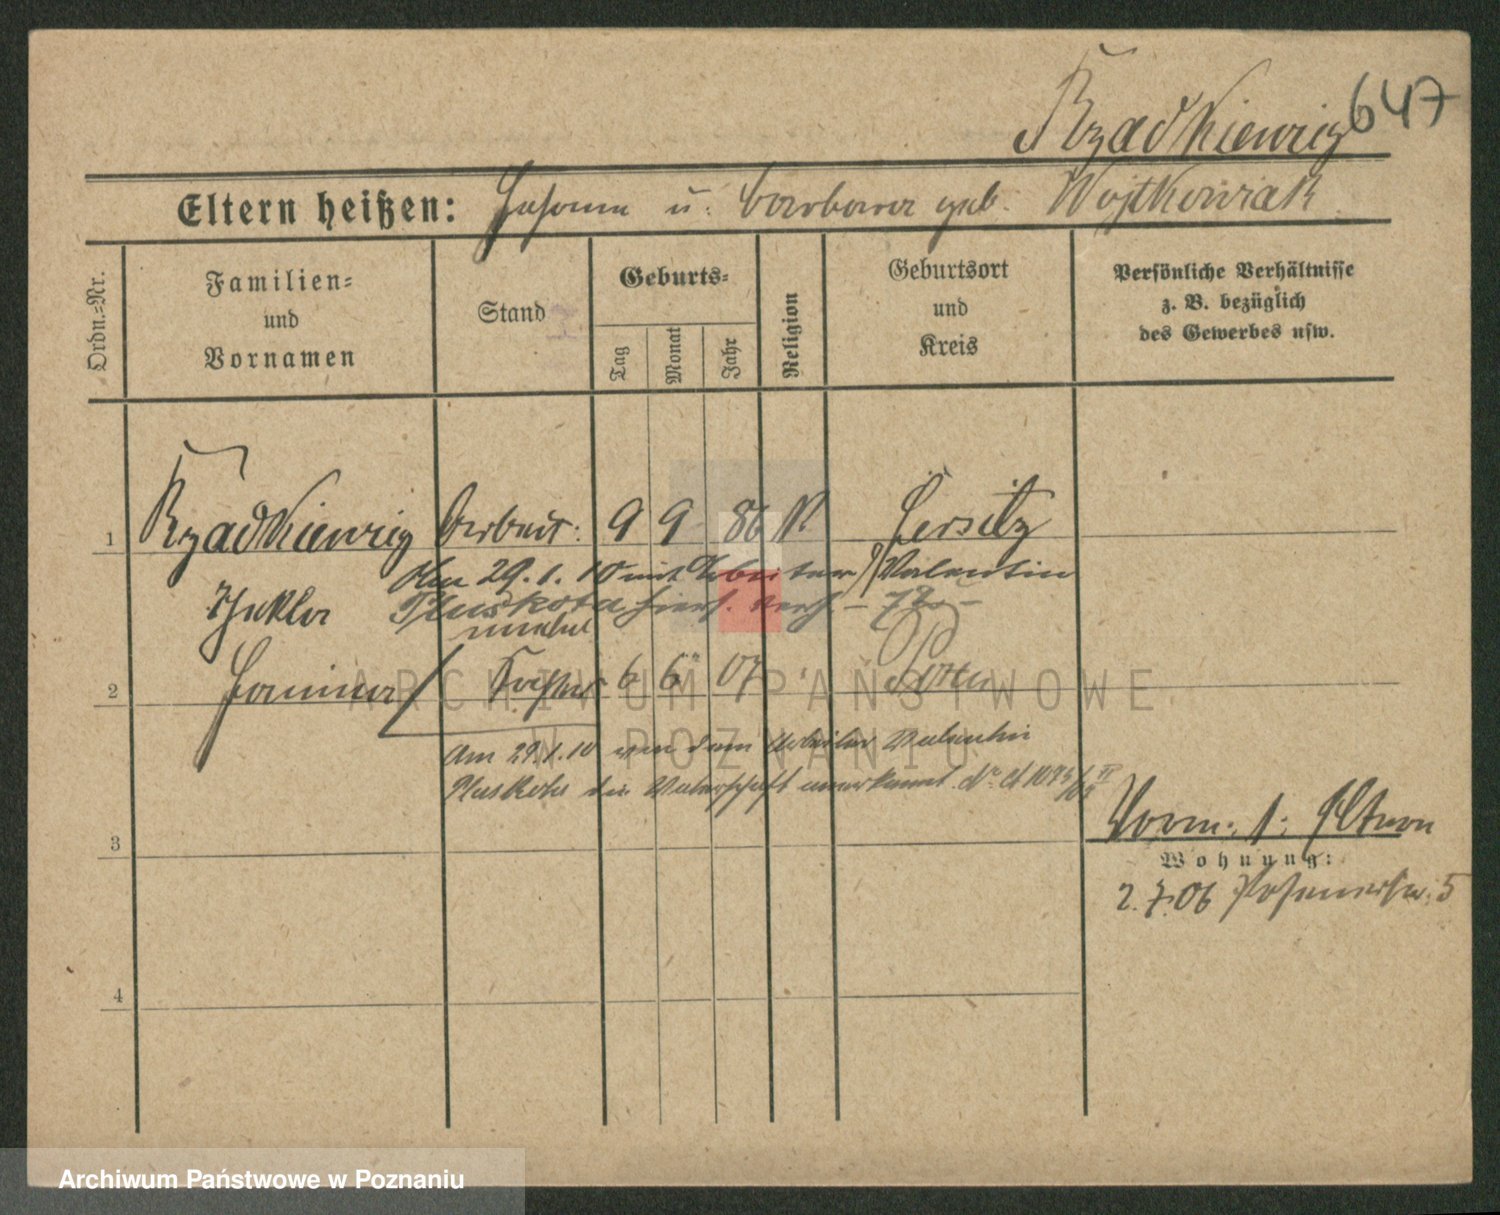 647
Rzadkiewicz
Eltern heißen: Johann u. Barbara geb. Wojtkowiak
Ordn.-Nr.
Familien-
und
Vornamen
Stand
Geburts-
Tag
Monat
Jahr
Religion
Geburtsort
und
Kreis
Persönliche Verhältnisse
z. B. bezüglich
des Gewerbes usw.
1 Rzadkiewicz Arbeit. 9 9 86 K. Jersitz
Am 29.1.10 mit Arbeiter Valentin
Thekla Pluskota hier verh.
unehel
2 Tochter 6 6 07 Posen
Am 29.1.10 von dem Arbeiter Valentin
Pluskota die Vaterschaft anerkannt.
3
Vorm. s. Eltern
Wohnung:
2.7.06 Posenerstr. 5
4
ARCHIWUM PAŃSTWOWE
W POZNANIU
Archiwum Państwowe w Poznaniu